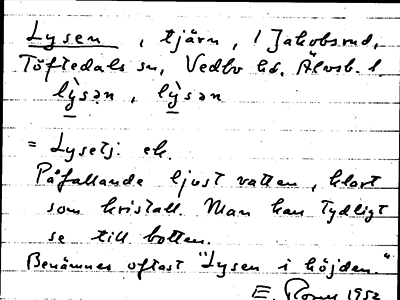 Lysen, tjärn, i Jakobsrud,
Töftedals sn, Vedbo hd, Älvsb. l.
lỳsən, lỳsən
= Lysetj. ek.
Påfallande ljust vatten, klart
som kristall. Man kan tydligt
se till botten.
Benämnes oftast "Lysen i höjden."
E. 1952